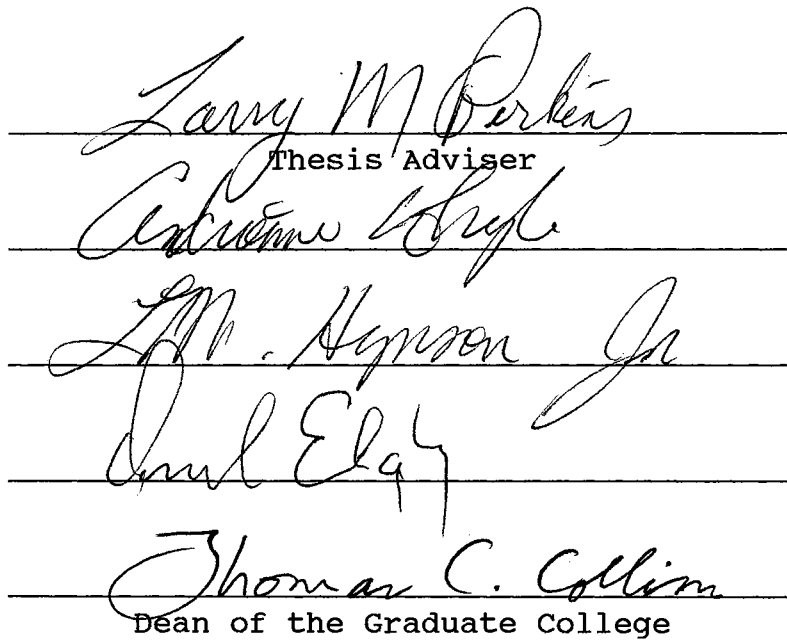 Larry M Perkins
Thesis Adviser
Adrienne
L.M. Hynson Jr
Thomas C. Collins
Dean of the Graduate College